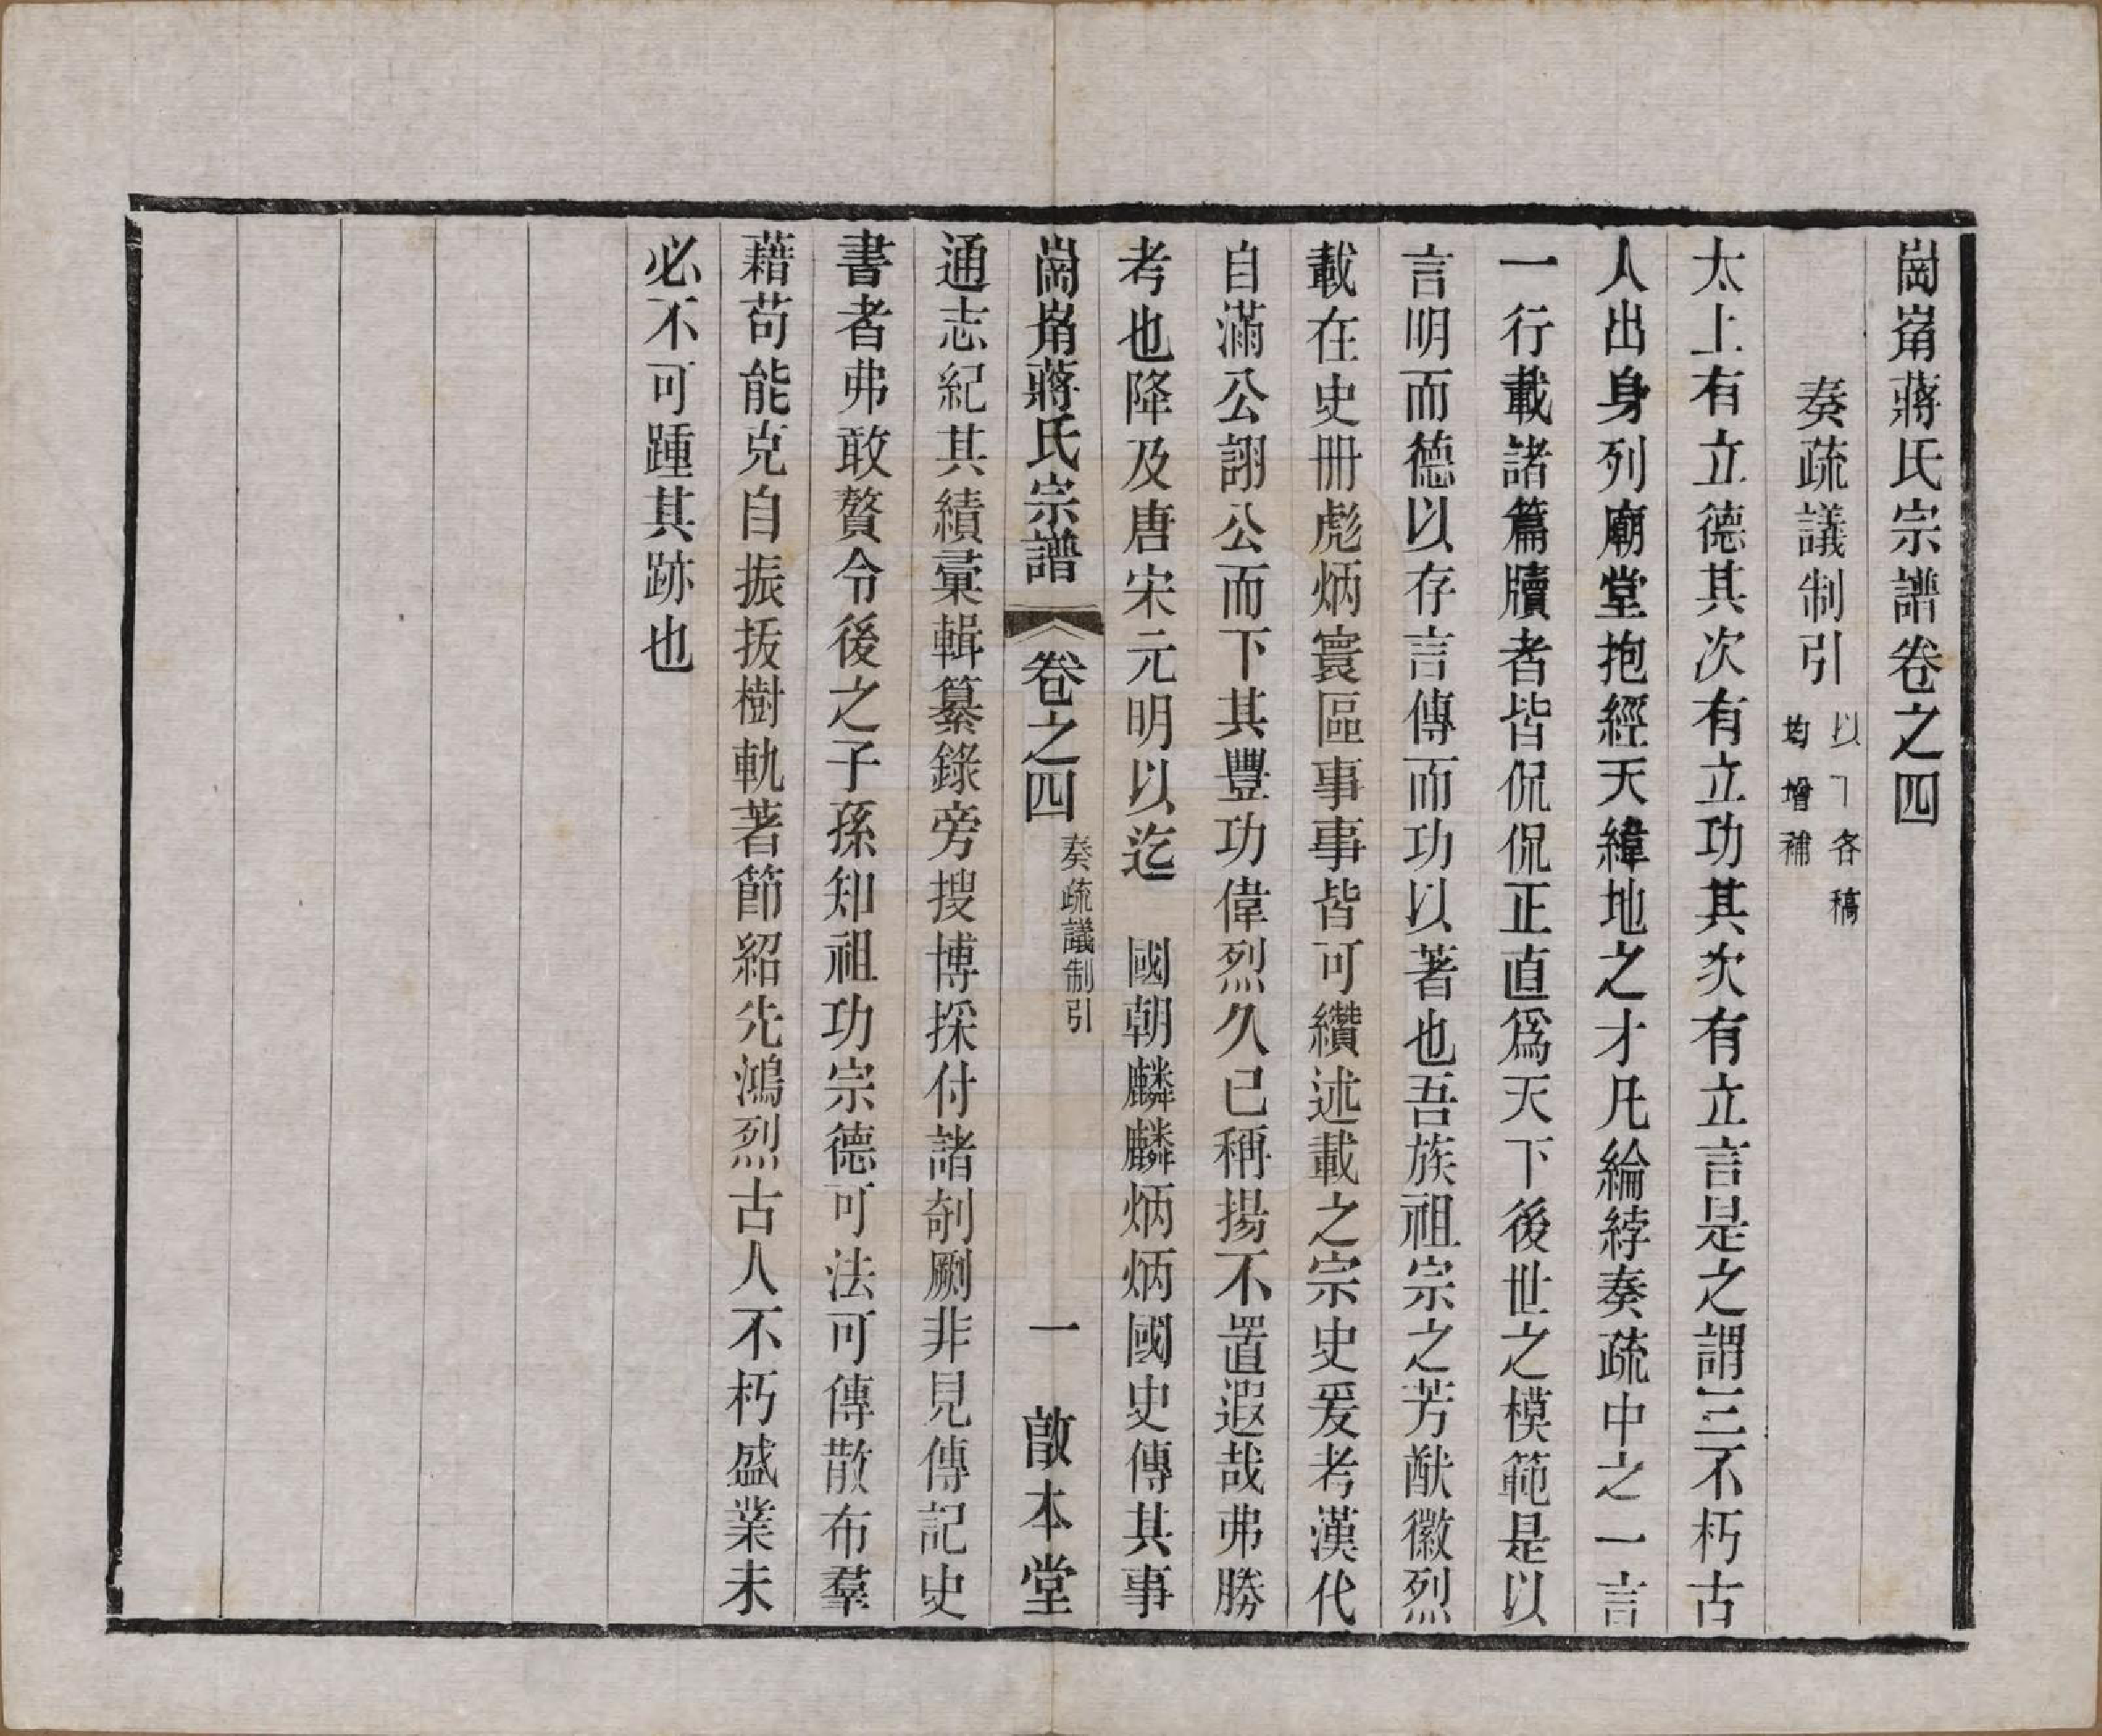 崗崙蔣氏宗譜卷之四
奏疏議制引
以下各稿
均增補
太上有立德其次有立功其次有立言是之謂三不朽古
人出身列廟堂抱經天緯地之才凡綸綍奏疏中之一言
一行載諸篇牘者皆侃侃正直爲天下後世之模範是以
言明而德以存言傳而功以著也吾族祖宗之芳猷徽烈
載在史册彪炳寰區事事皆可纘述載之宗史爰考漢代
自滿公詡公而下其豐功偉烈久已稱揚不置遐哉弗勝
考也降及唐宋元明以迄 國朝麟麟炳炳國史傳其事
崗崙蔣氏宗譜 卷之四 奏疏議制引 一 啟本堂
通志紀其績彙輯纂錄旁搜博採付諸剞劂非見傳記史
書者弗敢贅令後之子孫知祖功宗德可法可傳散布羣
藉苟能克自振拔樹軌著節紹先鴻烈古人不朽盛業未
必不可踵其跡也